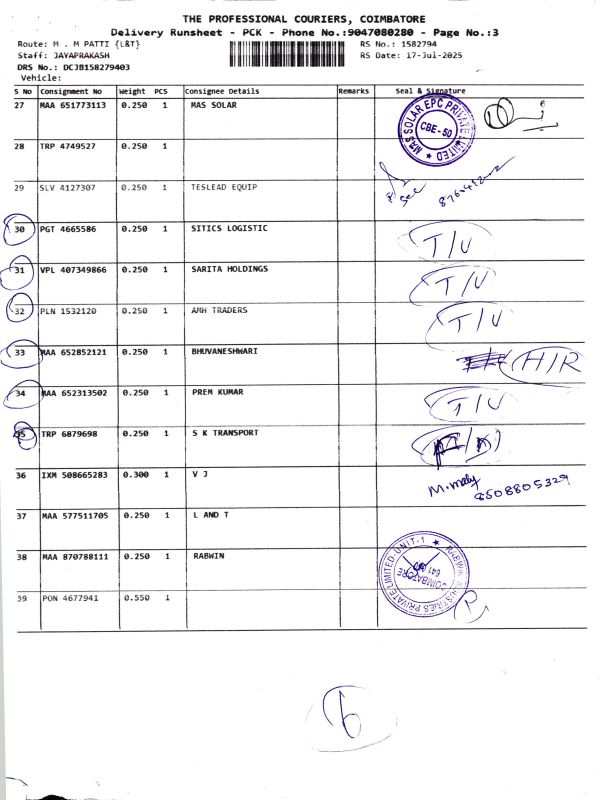 THE PROFESSIONAL COURIERS, COIMBATORE
Delivery Runsheet - PCK - Phone No.:9047080280 - Page No.:3
Route: M . M PATTI {L&T} RS No.: 1582794
Staff: JAYAPRAKASH RS Date: 17-Jul-2025
DRS No.: DCJB158279403
Vehicle:
S No Consignment No Weight PCS Consignee Details Remarks Seal & Signature
27 MAA 651773113 0.250 1 MAS SOLAR MAS SOLAR EPC PRIVATE LIMITED ★ CBE-50
28 TRP 4749527 0.250 1
29 SLV 4127307 0.250 1 TESLEAD EQUIP
30 PGT 4665586 0.250 1 SITICS LOGISTIC T/U
31 VPL 407349866 0.250 1 SARITA HOLDINGS T/U
32 PLN 1532120 0.250 1 AMH TRADERS T/U
33 MAA 652852121 0.250 1 BHUVANESHWARI H/R
34 MAA 652313502 0.250 1 PREM KUMAR T/U
35 TRP 6879698 0.250 1 S K TRANSPORT
36 IXM 508665283 0.300 1 V J 8508805329
37 MAA 577511705 0.250 1 L AND T
38 MAA 870788111 0.250 1 RABWIN RABWIN INDUSTRIES PRIVATE LIMITED-UNIT-1 ★ COIMBATORE
39 PON 4677941 0.550 1
6